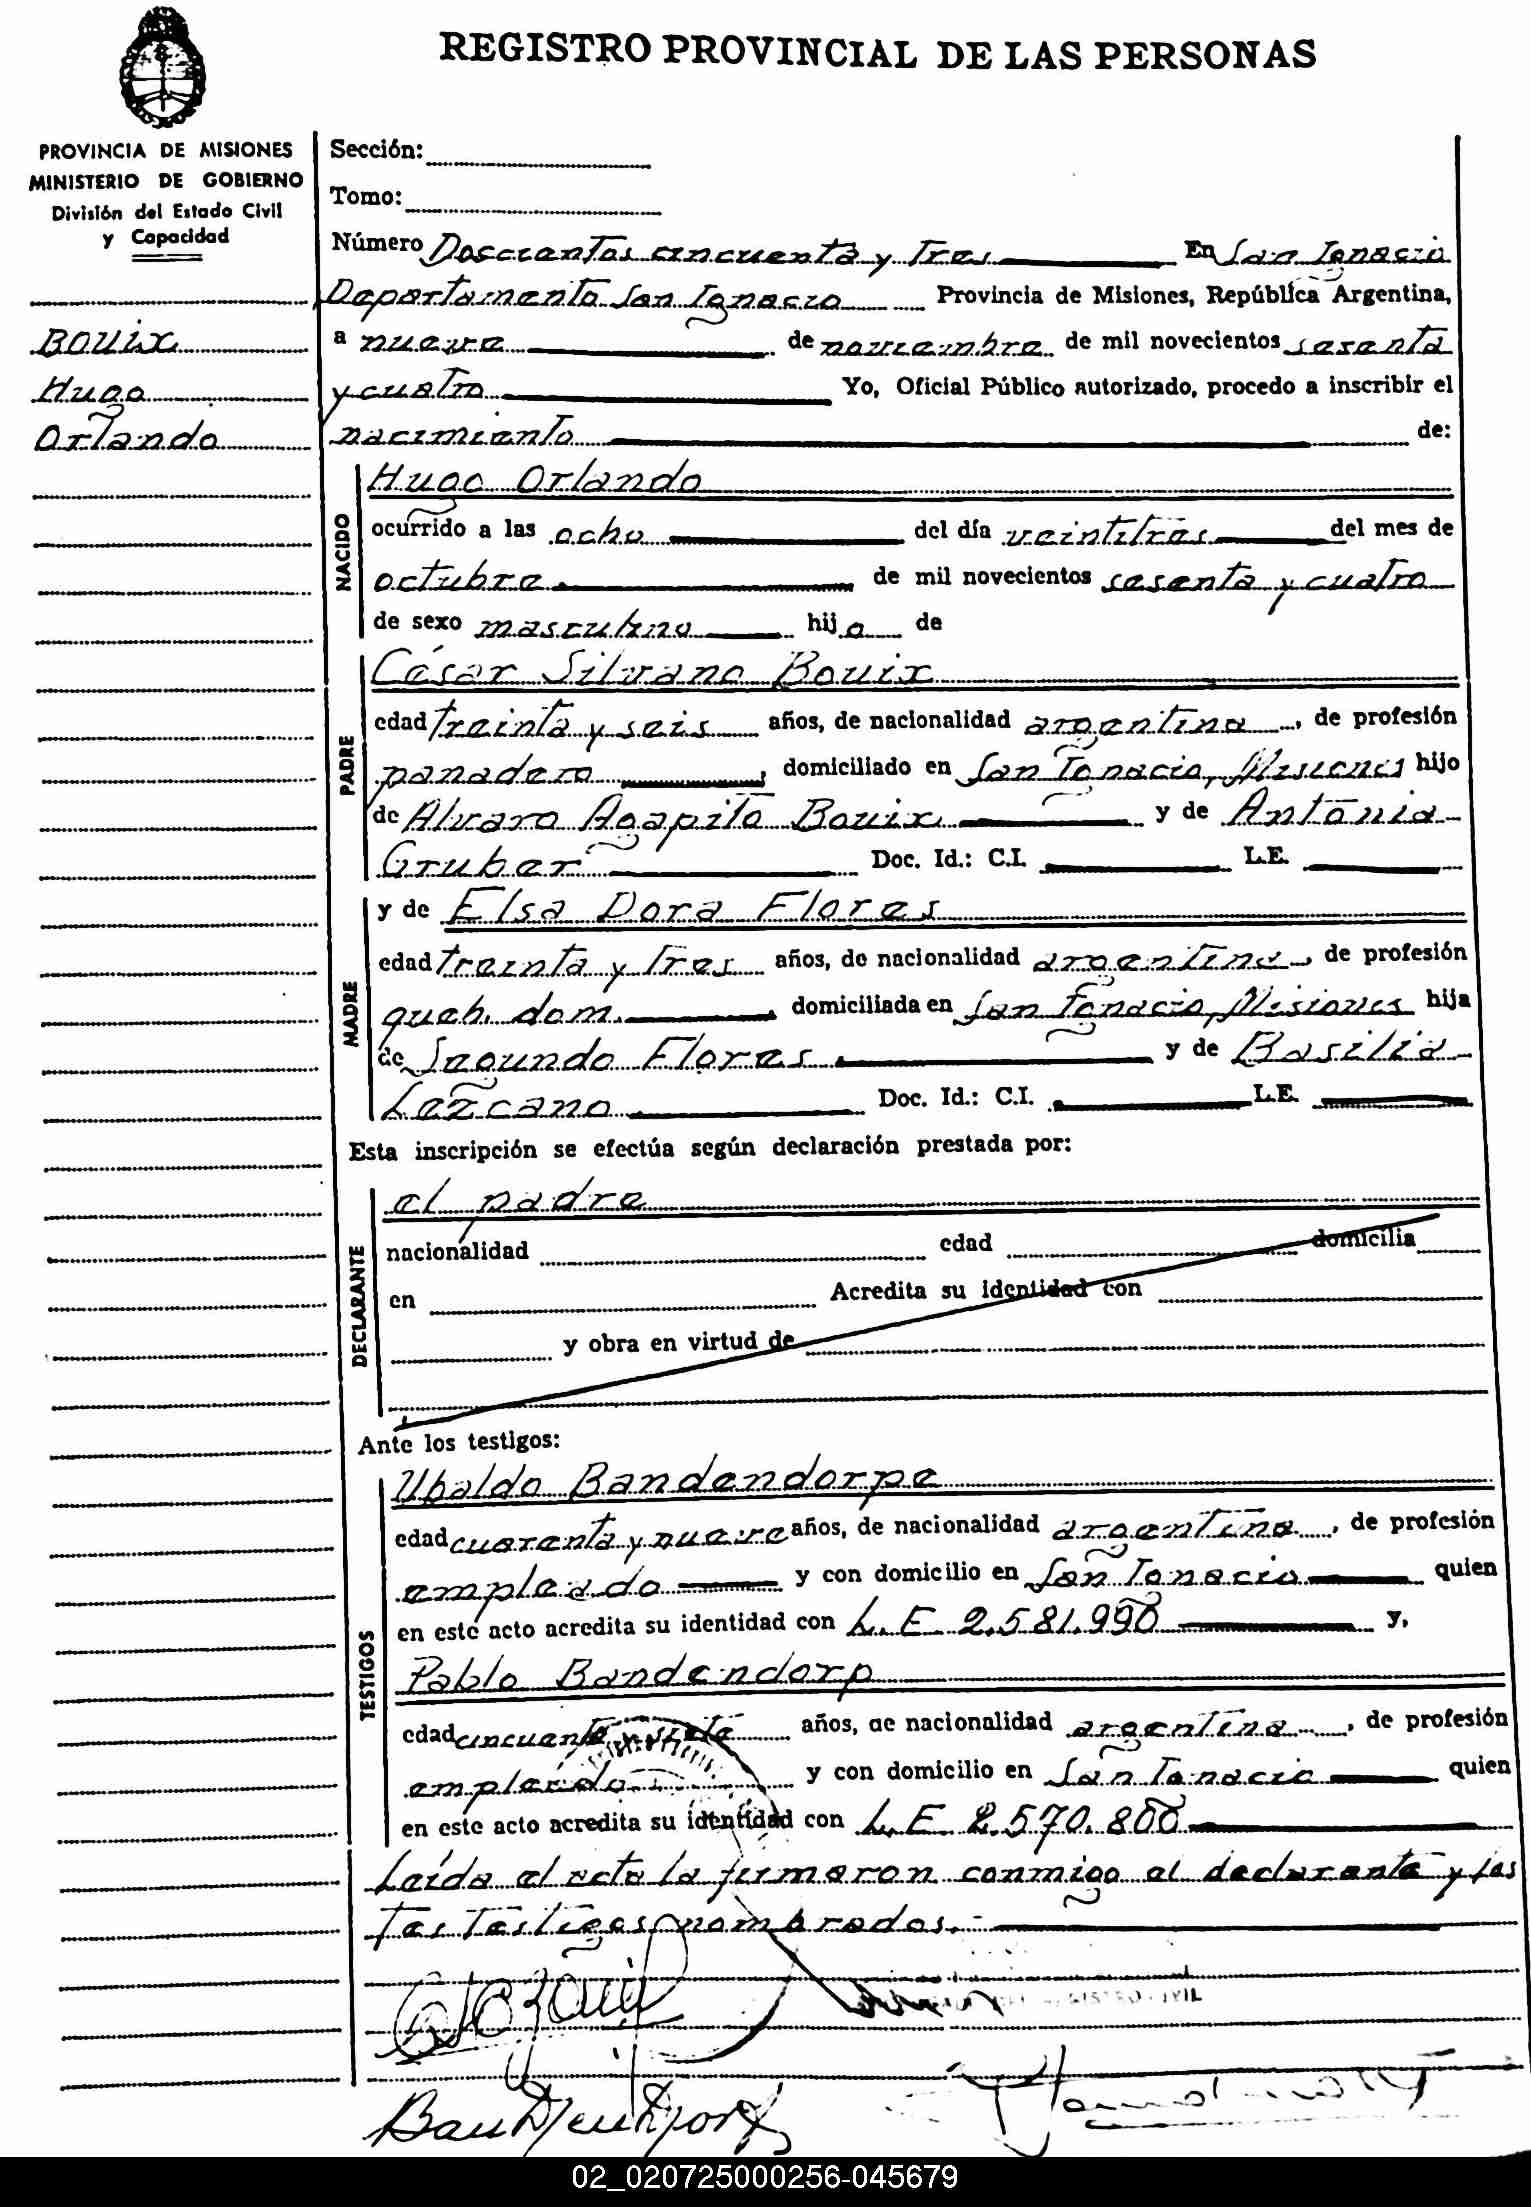 REGISTRO PROVINCIAL DE LAS PERSONAS
PROVINCIA DE MISIONES
MINISTERIO DE GOBIERNO
División del Estado Civil
y Capacidad
Bouix
Hugo
Orlando
Sección:
Tomo:
Número Doscientos cincuenta y tres En San Ignacio
Departamento San Ignacio Provincia de Misiones, República Argentina,
a nueve de noviembre de mil novecientos sesenta
y cuatro Yo, Oficial Público autorizado, procedo a inscribir el
nacimiento de:
NACIDO
Hugo Orlando
ocurrido a las ocho del día veintitres del mes de
octubre de mil novecientos sesenta y cuatro
de sexo masculino hijo de
PADRE
César Silvano Bouix
edad treinta y seis años, de nacionalidad argentina, de profesión
panadero, domiciliado en San Ignacio, Misiones hijo
de Alvaro Agapito Bouix y de Antonia
Gruber Doc. Id.: C.I. L.E.
MADRE
y de Elsa Dora Flores
edad treinta y tres años, de nacionalidad argentina, de profesión
queh. dom. domiciliada en San Ignacio, Misiones hija
de Segundo Flores y de Basilia
Lezcano Doc. Id.: C.I. L.E.
Esta inscripción se efectúa según declaración prestada por:
DECLARANTE
el padre
nacionalidad edad domicilia
en Acredita su identidad con
y obra en virtud de
Ante los testigos:
TESTIGOS
Ubaldo Bandendorpe
edad cuarenta y nueve años, de nacionalidad argentina, de profesión
empleado y con domicilio en San Ignacio quien
en este acto acredita su identidad con L.E 2.581.990 y,
Pablo Bandendorp
edad cincuenta y siete años, de nacionalidad argentina, de profesión
empleado y con domicilio en San Ignacio quien
en este acto acredita su identidad con L.E 2.570.800
Leída el acta la firmaron conmigo el declarante y los
tes testigos nombrados.-
02_020725000256-045679